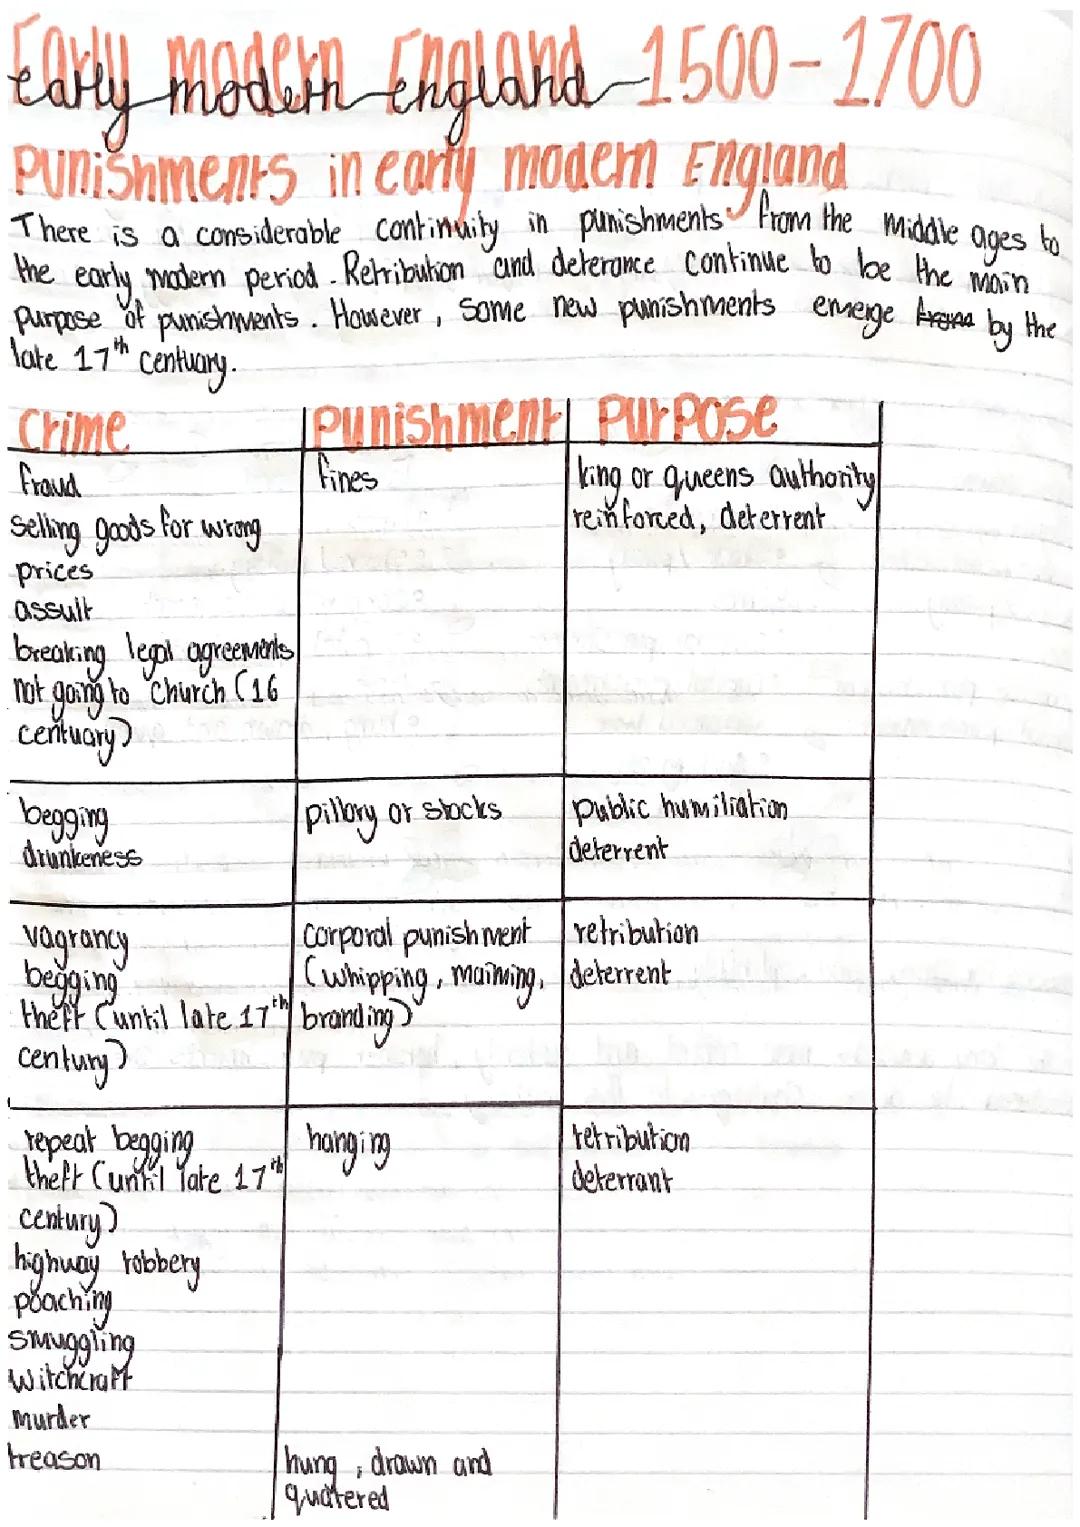 Early modern England 1500-1700
early modern england
punishments in early modern England
There is a considerable continuity in punishments from the middle ages to
the early modern period. Retribution and deterance continue to be the main
purpose of punishments. However, some new punishments emerge by the
late 17th centuary.
Crime punishment Purpose
fraud fines king or queens authority
selling goods for wrong reinforced, deterrent
prices
assult
breaking legal agreements
not going to church (16
centuary)
begging pillory or stocks public humiliation
drunkeness deterrent
vagrancy corporal punishment retribution
begging (whipping, maiming, deterrent
theft (until late 17th branding)
century)
repeat begging hanging retribution
theft (until late 17th deterrant
century)
highway robbery
poaching
smuggling
witchcraft
murder
treason hung, drawn and
quatered